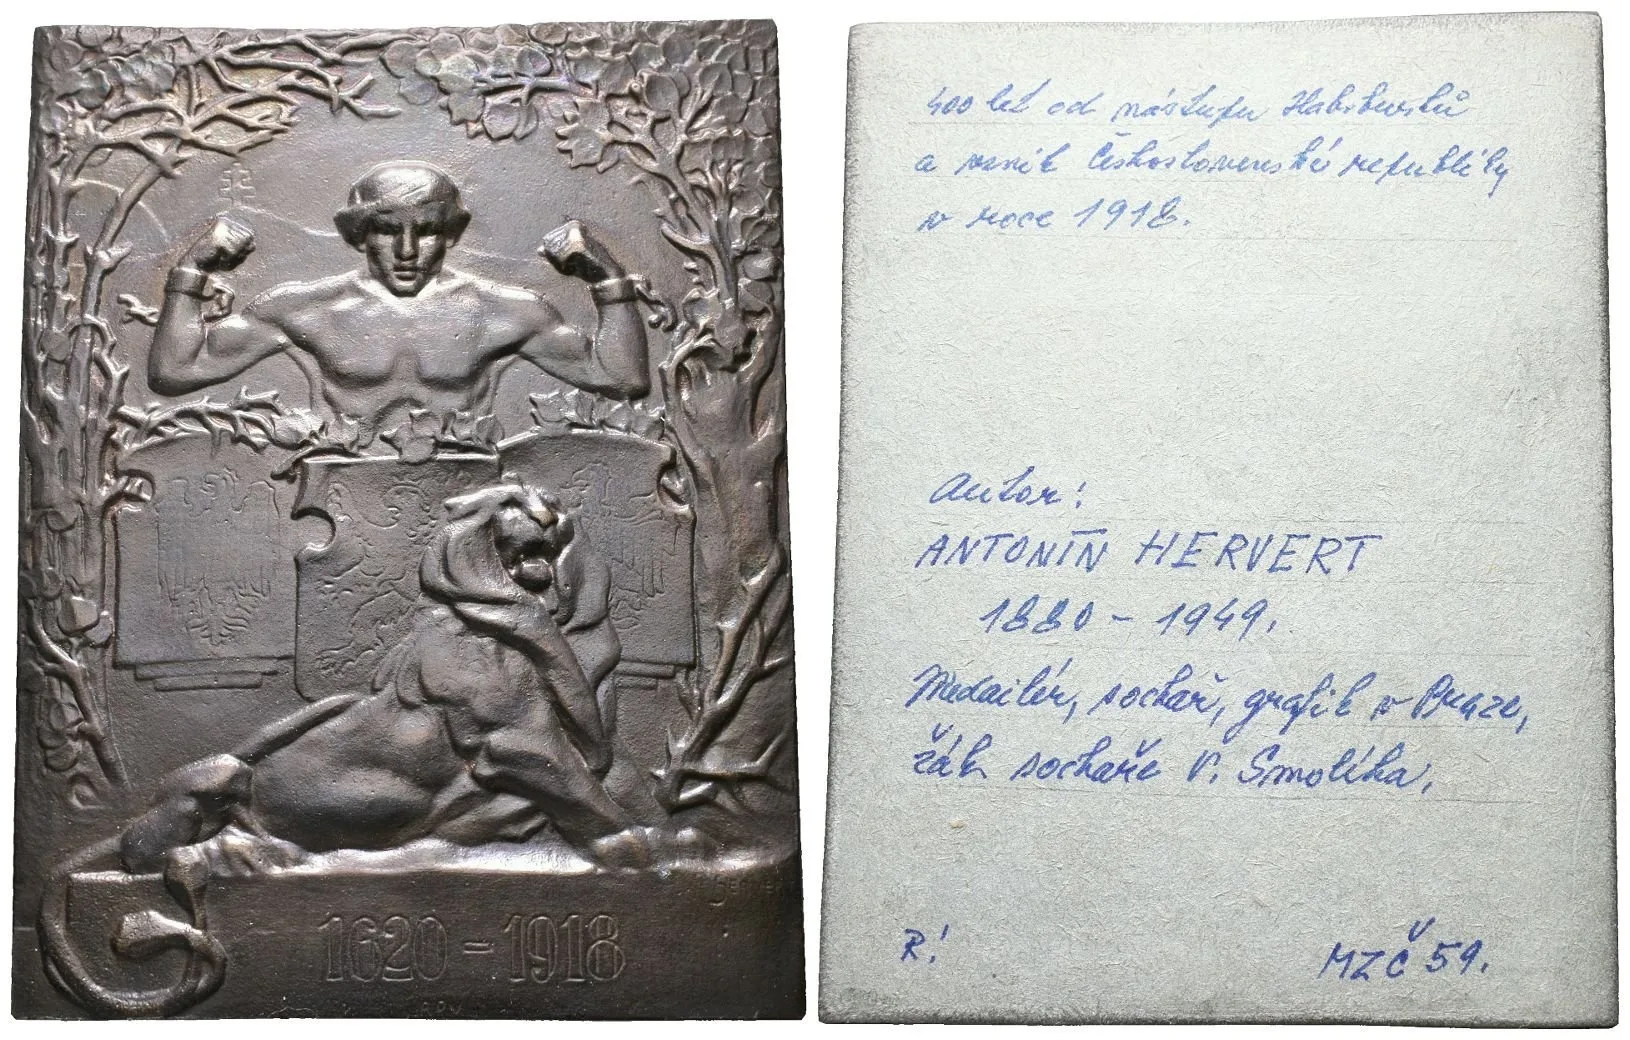 Hervert
1620 - 1918
400 let od nástupu Habsburků
a vznik Československé republiky
v roce 1918.
Autor:
ANTONÍN HERVERT
1880 - 1949.
Medailér, sochař, grafik v Praze,
žák sochaře V. Smolíka.
R!
MZČ 59.